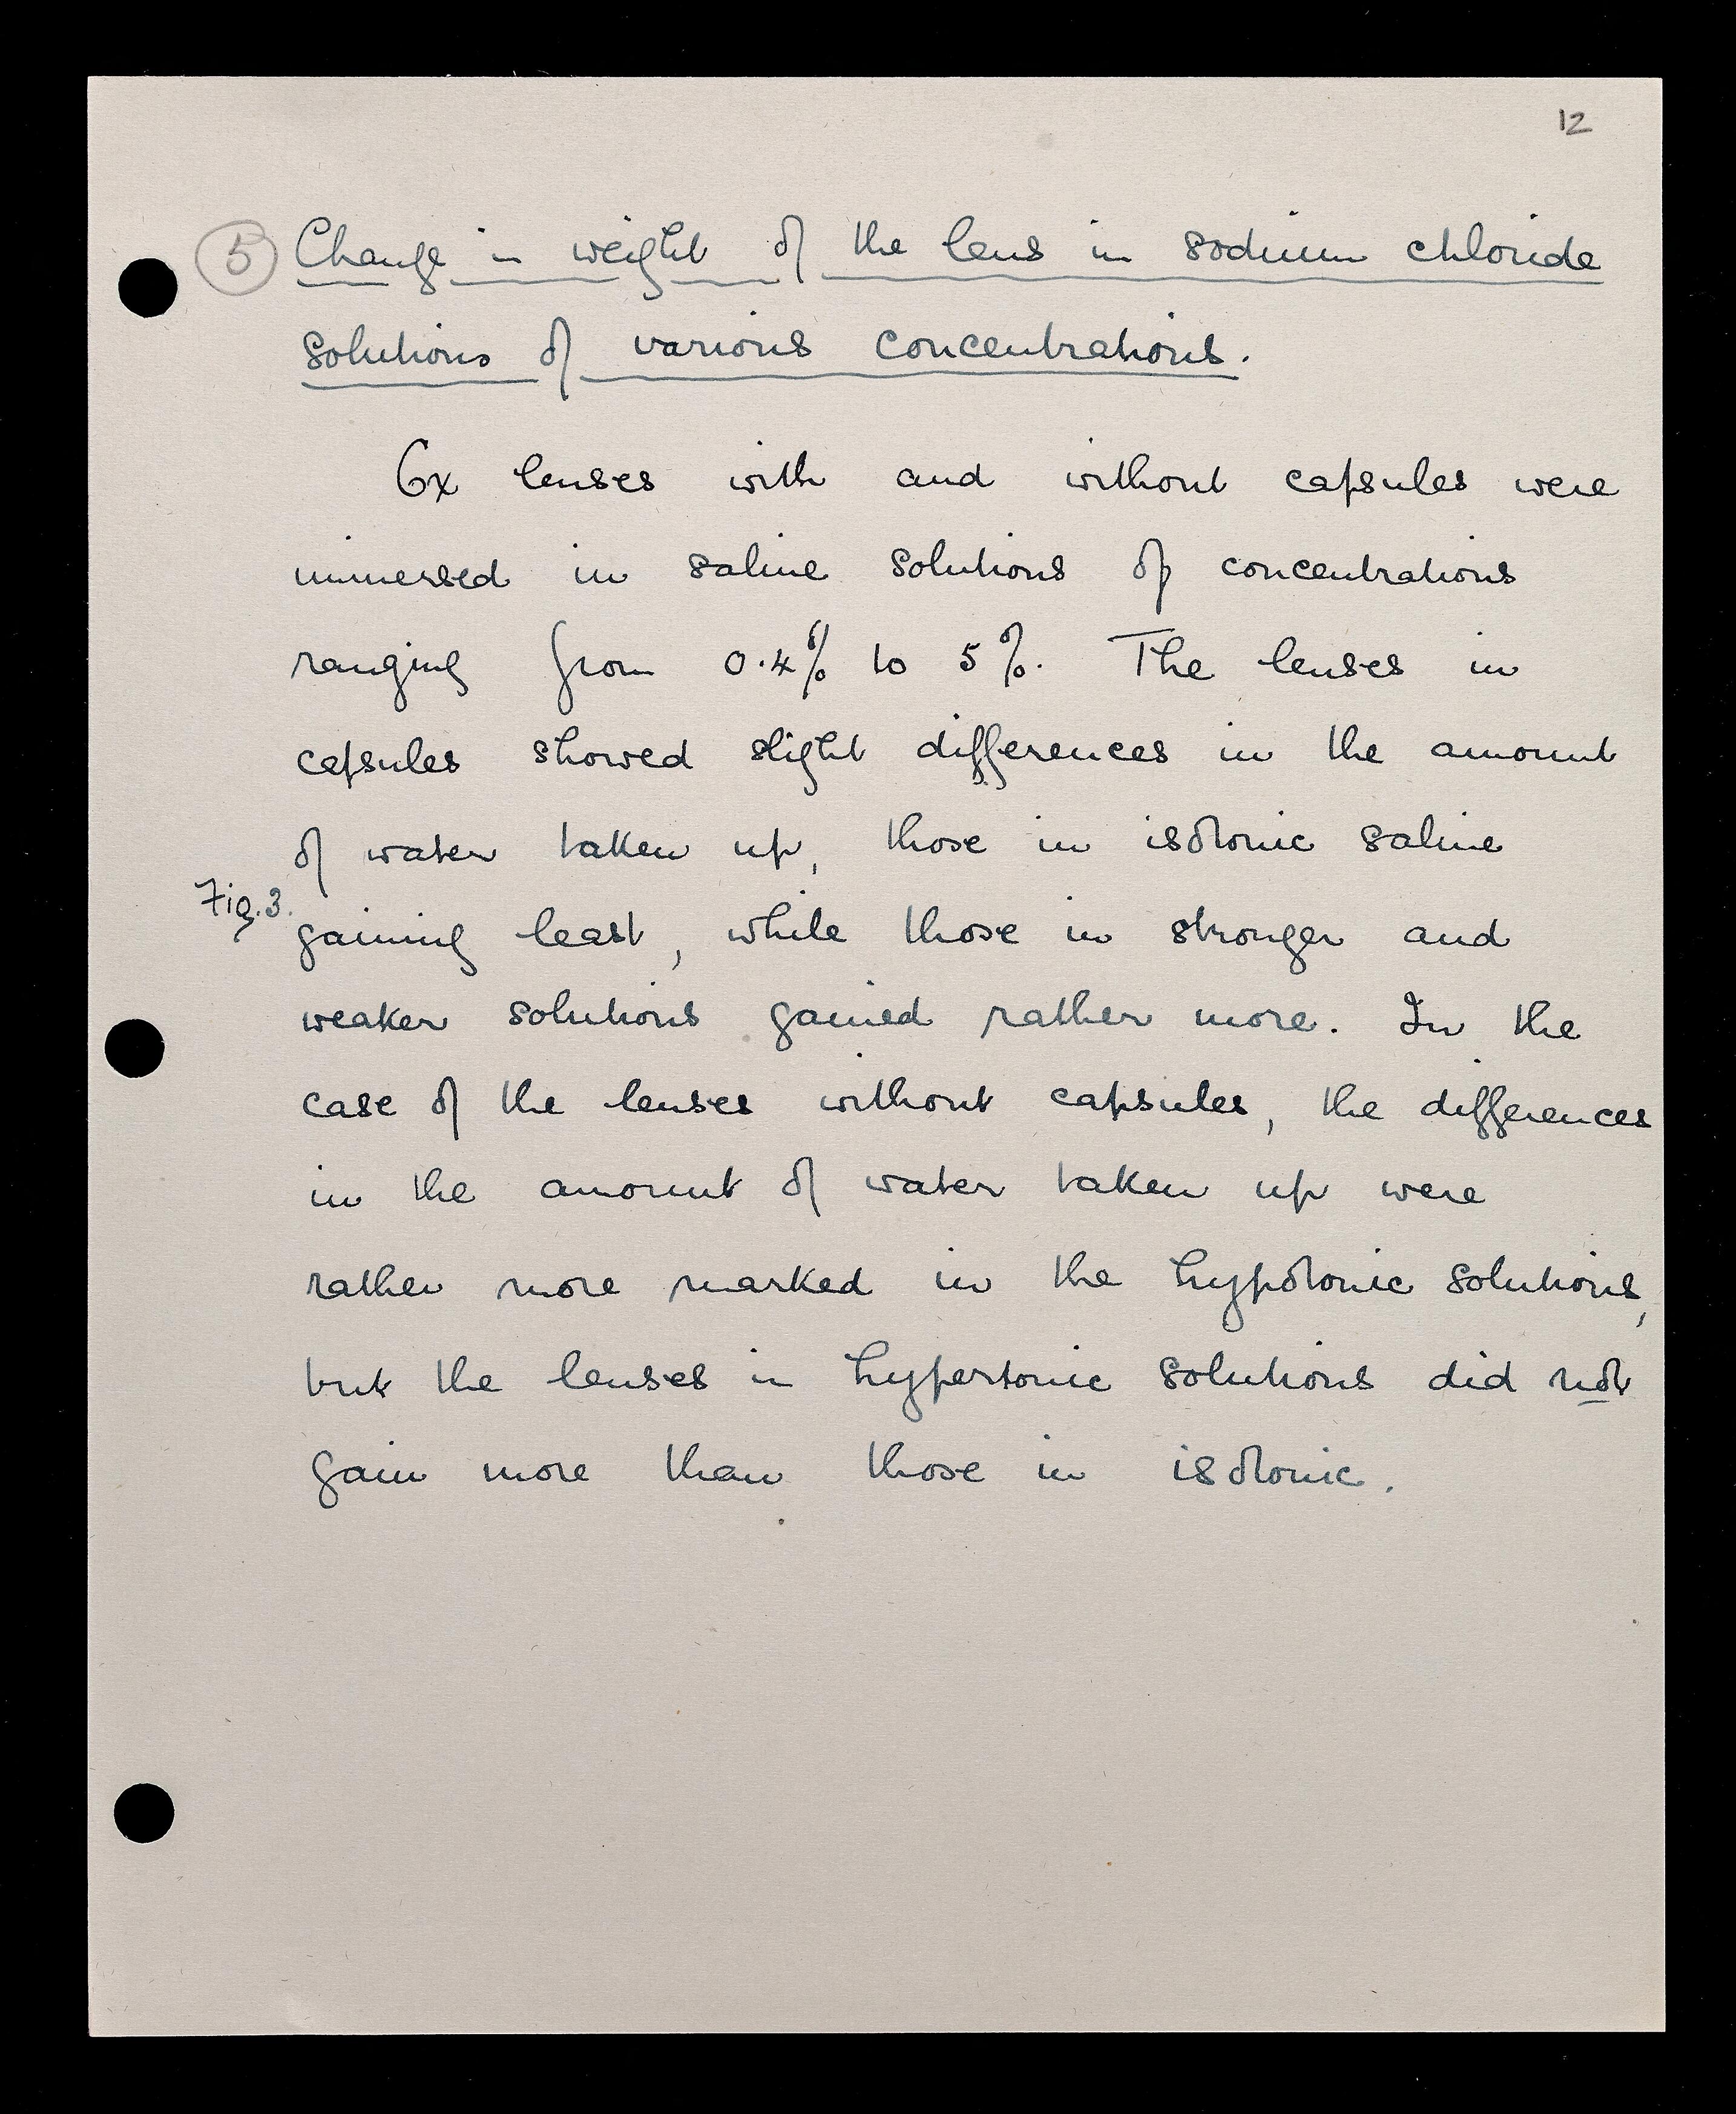 12
5 Change in weight of the lens in sodium chloride
solutions of various concentrations.
Ox lenses with and without capsules were
immersed in saline solutions of concentrations
ranging from 0.4% to 5%. The lenses in
capsules showed slight differences in the amount
of water taken up, those in isotonic saline
Fig. 3.
gaining least, while those in stronger and
weaker solutions gained rather more. In the
case of the lenses without capsules, the differences
in the amount of water taken up were
rather more marked in the hypotonic solutions,
but the lenses in hypertonic solutions did not
gain more than those in isotonic.